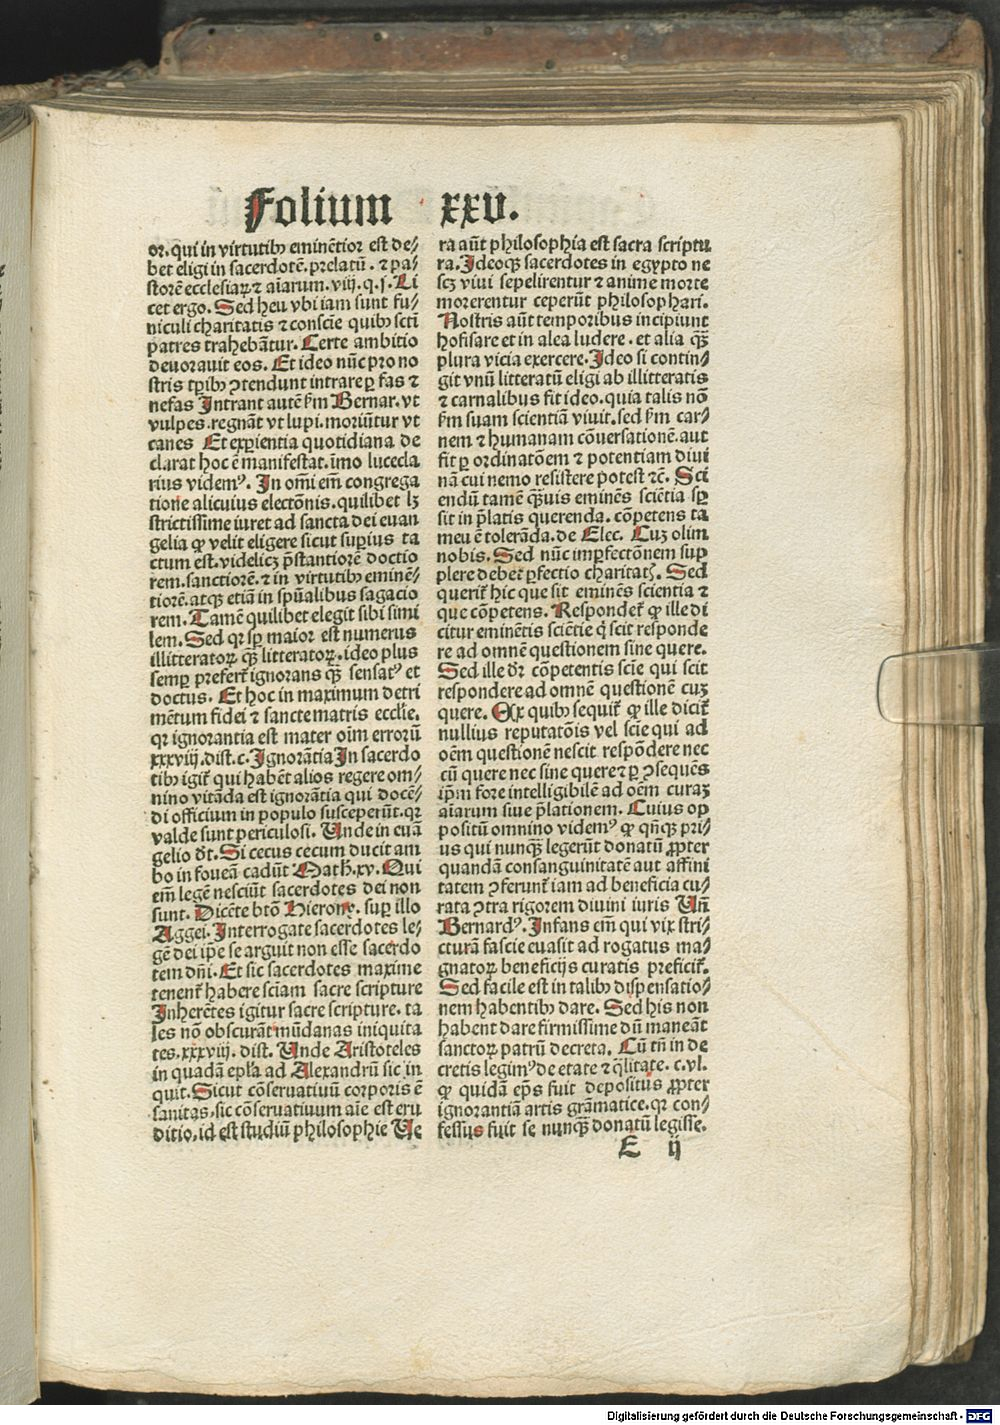 Folium xxv.
or. qui in virtutibꝫ eminētior est de⸗
bet eligi in sacerdotē. prelatū. ⁊ pa⸗
storē ecclesiaꝝ ⁊ aīarum. viij. q. j. Li
cet ergo. Sed heu vbi iam sunt fu⸗
niculi charitatis ⁊ conscīe quibꝫ scti
patres trahebāntur. Certe ambitio
deuorauit eos. Et ideo nūc pro no
stris tꝑibꝫ ꝯtendunt intrare ꝑ fas ⁊
nefas Intrant autē ẜm Bernar. vt
vulpes. regnāt vt lupi. moriūtur vt
canes Et exꝑientia quotidiana de
clarat hoc ē manifestat. īmo lucecla
rius videmꝰ. In om̄i em̄ congrega
tione alicuius electōnis. quilibet lꝫ
strictissime iuret ad sancta dei euan
gelia ꝙ velit eligere sicut suꝑius ta
ctum est. videlicꝫ p̄stantiorē doctio
rem. sanctiorē. ⁊ in virtutibꝫ eminē⸗
tiorē. atqꝫ etiā in spūalibus sagacio
rem. Tamē quilibet elegit sibi simi
lem. Sed qꝛ sꝑ maior est numerus
illitteratoꝝ qꝫ̄ litteratoꝝ. ideo plus
semꝑ prefert᷑ ignorans qꝫ̄ sensatꝰ et
doctus. Et hoc in maximum detri
mētum fidei ⁊ sancte matris ecclīe.
qꝛ ignorantia est mater oīm erroꝝ
xxxviij. dist. c. Ignorātia In sacerdo
tibꝫ igit᷑ qui habēt alios regere om⸗
nino vitāda est ignorātia qui docē⸗
di officium in populo susceperūt. qꝛ
valde sunt periculosi. Unde in euā
gelio dr̄. Si cecus cecum ducit am
bo in foueā cadūt Math. xv. Qui
em̄ legē nesciūt sacerdotes dei non
sunt. Dicēte btō Hierony. suꝑ illo
Aggei. Interrogate sacerdotes le⸗
gē dei ip̄e se arguit non esse sacerdo
tem dn̄i. Et sic sacerdotes maxime
tenent᷑ habere sciam sacre scripture
Inherētes igitur sacre scripture. ta
les nō obscurāt mūdanas iniquita
tes. xxxviij. dist. Unde Aristoteles
in quadā epl̄a ad Alexandrū sic in
quit. Sicut cōseruatiuū corporis ē
sanitas. sic cōseruatiuum aīe est eru
ditio. id est studiū philosophie Ve
ra aūt philosophia est sacra scriptu
ra. Ideoqꝫ sacerdotes in egypto ne
scꝫ viui sepelirentur ⁊ anime morte
morerentur ceperūt philosophari.
Nostris aūt temporibus incipiunt
hofisare et in alea ludere. et alia qꝫ̄
plura vicia exercere. Ideo si contin⸗
git vnū litteratū eligi ab illitteratis
⁊ carnalibus fit ideo. quia talis nō
ẜm suam scientiā viuit. sed ẜm car⸗
nem ⁊ humanam cōuersationē. aut
fit ꝑ ordinatōem ⁊ potentiam diui
nā cui nemo resistere potest ⁊c̄. Sci
endū tamē qꝫ̄uis eminēs sciētia sꝑ
sit in p̄latis querenda. cōpetens ta
meu ē tolerāda. de Elec. Cuꝫ olim
nobis. Sed nūc imꝑfectōnem sup
plere debet ꝑfectio charitatꝭ. Sed
querit᷑ hic que sit eminēs scientia ⁊
que cōpetens. Respondet᷑ ꝙ ille di
citur eminētis sciētie q̇ scit responde
re ad omnē questionem sine quere.
Sed ille dr̄ cōpetentis scīe qui scit
respondere ad omnē questionē cuꝫ
quere. Ex quibꝫ sequit᷑ ꝙ ille dicit᷑
nullius reputatōis vel scīe qui ad
oēm questionē nescit respōdere nec
cū quere nec sine quere ⁊ ꝑ ꝯsequēs
ip̄m fore intelligibilē ad oēm curaꝫ
aīarum siue p̄lationem. Cuius op
positū omnino videmꝰ ꝙ qn̄qꝫ pri⸗
us qui nunqꝫ̄ legerūt donatū ꝓpter
quandā consanguinitatē aut affini
tatem ꝯferunt᷑ iam ad beneficia cu⸗
rata ꝯtra rigorem diuini iuris Un̄
Bernardꝰ. Infans em̄ qui vix stri⸗
cturā fascie euasit ad rogatus ma⸗
gnatoꝝ beneficijs curatis preficit᷑.
Sed facile est in talibꝫ dispensatio⸗
nem habentibꝫ dare. Sed his non
habent dare firmissime dū maneāt
sanctoꝝ patrū decreta. Cū tn̄ in de
cretis legimꝰ de etate ⁊ q̄litate. c. vl.
ꝙ quidā ep̄s fuit depositus ꝓpter
ignorantiā artis grāmatice. qꝛ con⸗
fessus fuit se nunqꝫ̄ donatū legisse.
E ij
Digitalisierung gefördert durch die Deutsche Forschungsgemeinschaft - DFG